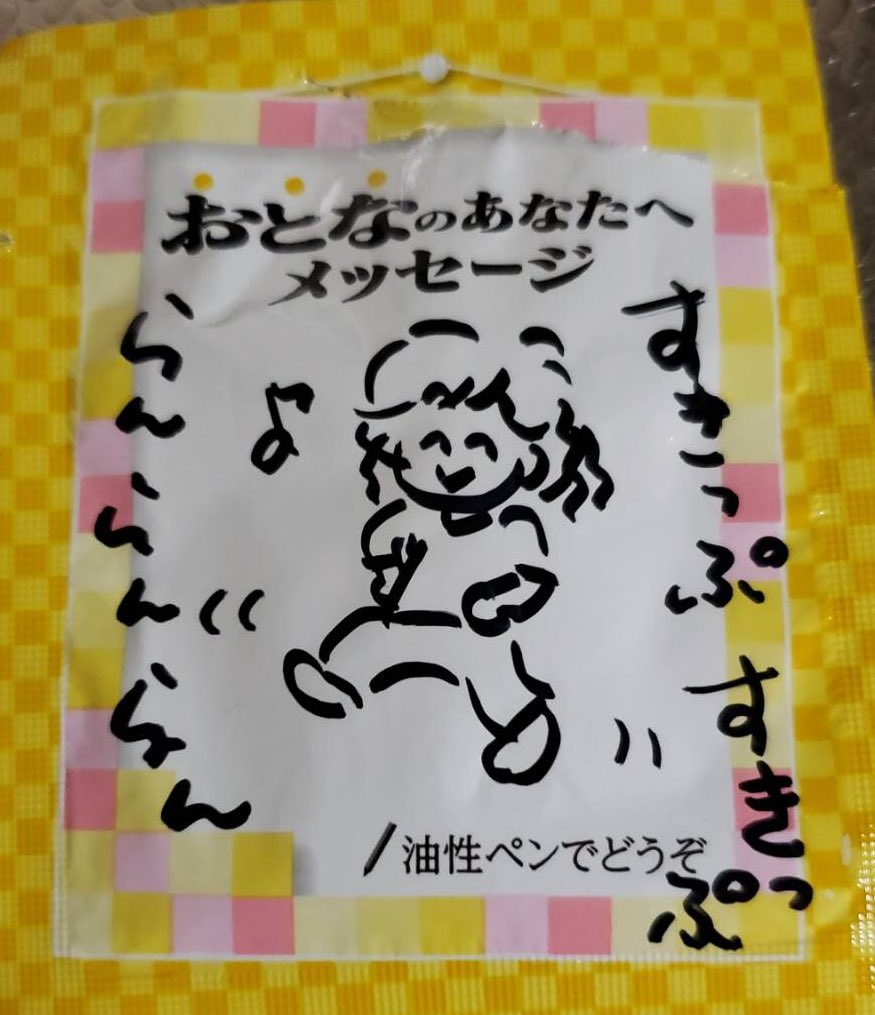 おとなのあなたへ
メッセージ
すきっぷ すきっぷ
らんらんらん
油性ペンでどうぞ